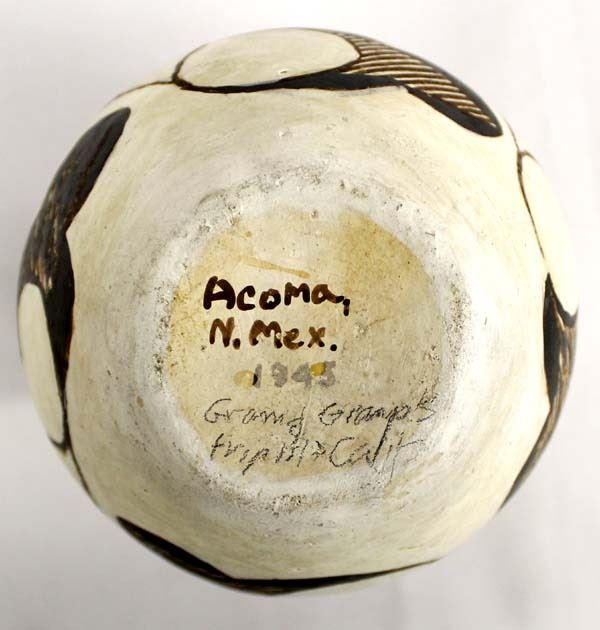 Acoma,
N. Mex.
1945
Gram & Gramp's
trip to Calif